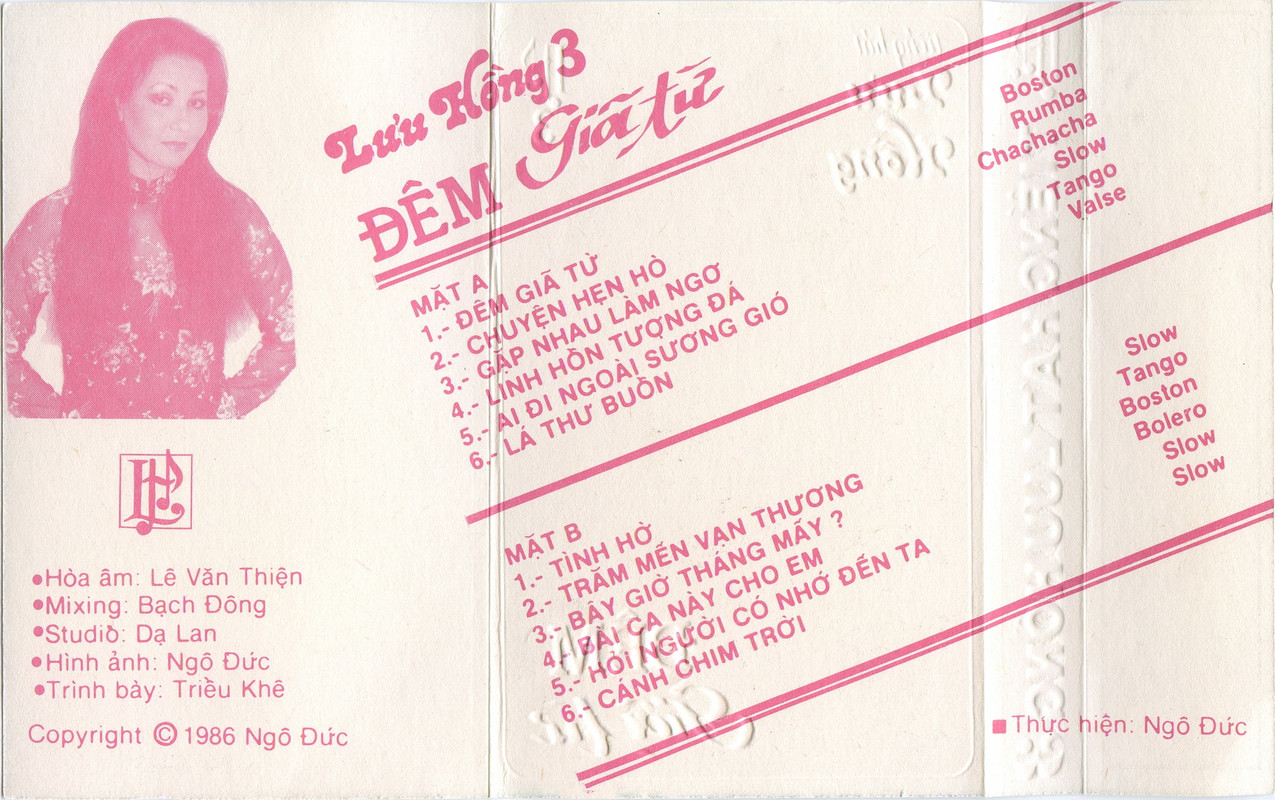 Lưu Hồng 3
ĐÊM Giã từ
MẶT A
1.- ĐÊM GIÃ TỪ
2.- CHUYỆN HẸN HÒ
3.- GẶP NHAU LÀM NGƠ
4.- LINH HỒN TƯỢNG ĐÁ
5.- AI ĐI NGOÀI SƯƠNG GIÓ
6.- LÁ THƯ BUỒN
Boston
Rumba
Chachacha
Slow
Tango
Valse
MẶT B
1.- TÌNH HỜ
2.- TRĂM MẾN VẠN THƯƠNG
3.- BÂY GIỜ THÁNG MẤY ?
4.- BÀI CA NÀY CHO EM
5.- HỎI NGƯỜI CÓ NHỚ ĐẾN TA
6.- CÁNH CHIM TRỜI
Slow
Tango
Boston
Bolero
Slow
Slow
●Hòa âm: Lê Văn Thiện
●Mixing: Bạch Đông
●Studiò: Dạ Lan
●Hình ảnh: Ngô Đức
●Trình bày: Triều Khê
Copyright © 1986 Ngô Đức
■ Thực hiện: Ngô Đức